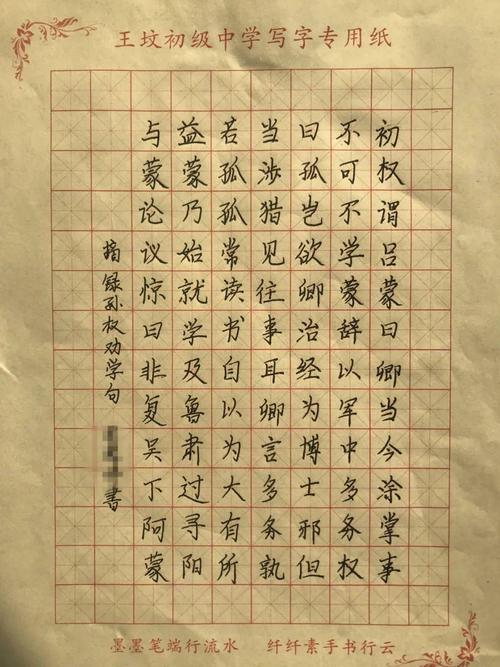 王坟初级中学写字专用纸
初权谓吕蒙曰卿当今涂掌事
不可不学蒙辞以军中多务权
曰孤岂欲卿治经为博士邪但
当涉猎见往事耳卿言多务孰
若孤孤常读书自以为大有所
益蒙乃始就学及鲁肃过寻阳
与蒙论议惊曰非复吴下阿蒙
摘録孙权劝学句 书
墨墨笔端行流水 纤纤素手书行云